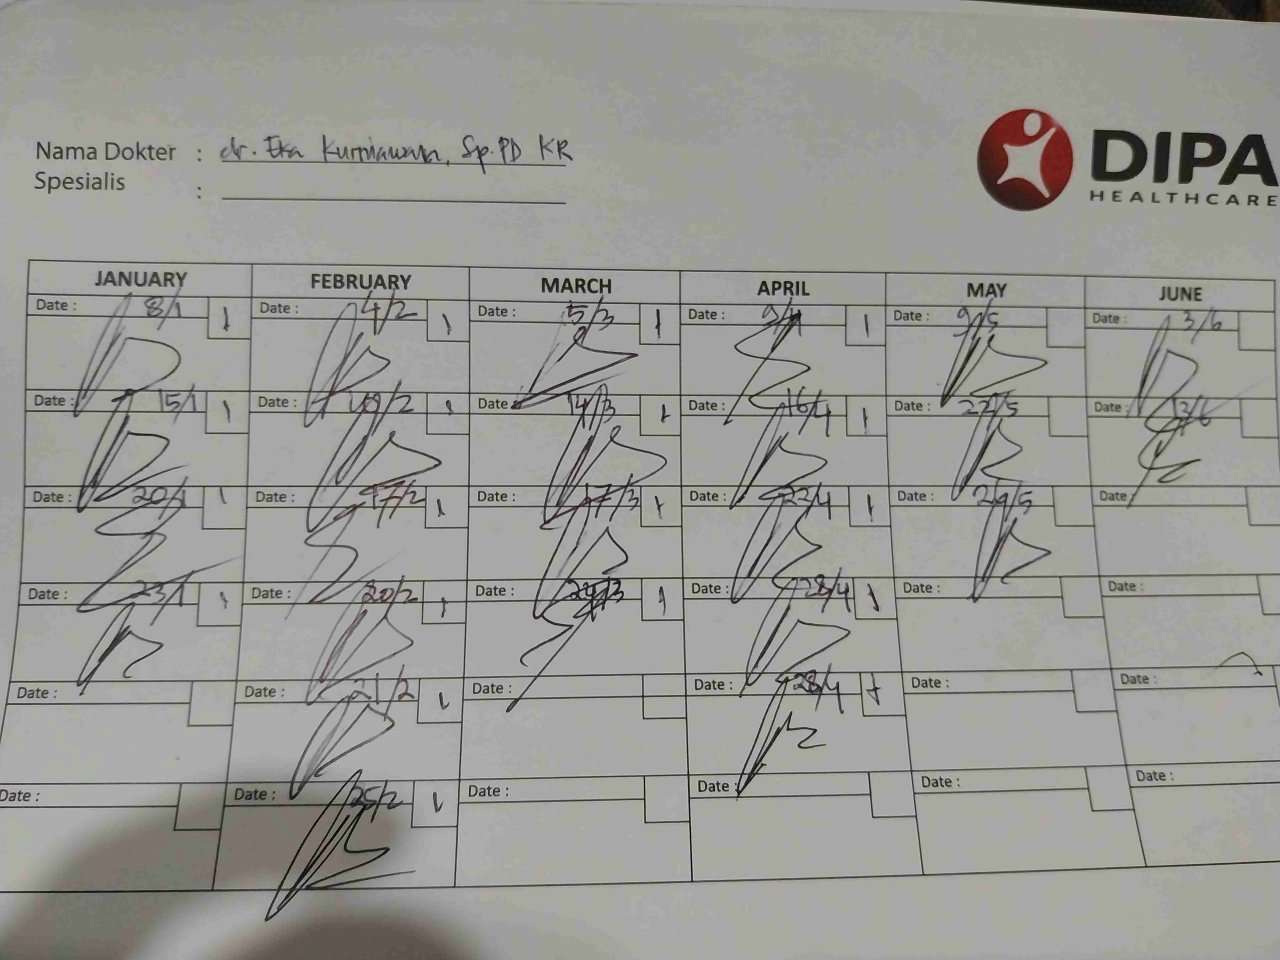 Nama Dokter : dr. Eka Kurniawan, Sp.PD KR
Spesialis :
DIPA
HEALTHCARE
JANUARY FEBRUARY MARCH APRIL MAY JUNE
Date : 8/1 1 Date : 4/2 1 Date : 5/3 1 Date : 9/4 1 Date : 9/5 Date : 3/6
Date : 15/1 1 Date : /2 1 Date : 14/3 1 Date : 16/4 1 Date : 22/5 Date : 13/6
Date : 20/1 1 Date : 17/2 1 Date : 17/3 1 Date : 22/4 1 Date : 29/5 Date :
Date : 23/1 1 Date : 20/2 1 Date : /3 1 Date : 28/4 1 Date : Date :
Date : Date : 21/2 1 Date : Date : 28/4 1 Date : Date :
Date : Date : 25/2 1 Date : Date : Date : Date :